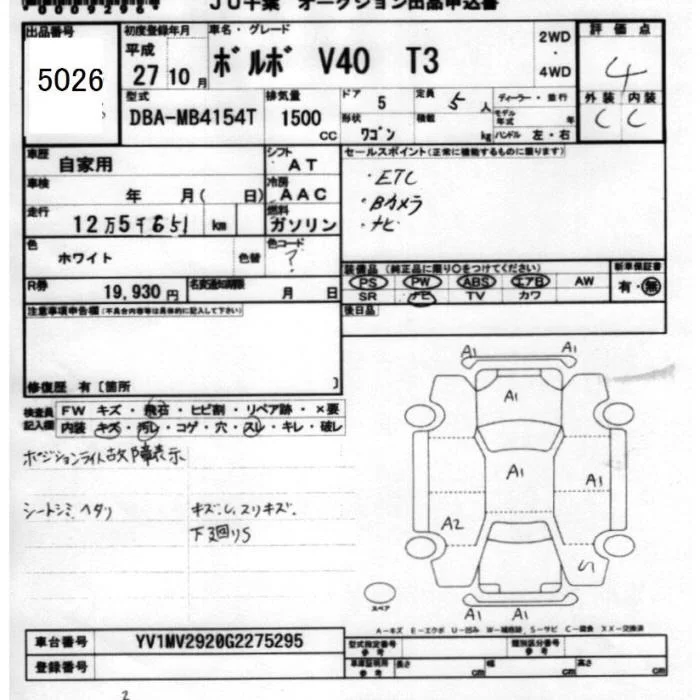 JU千葉 オークション出品申込書
出品番号 5026
初度登録年月 平成 27 10月
車名・グレード ボルボ V40 T3
2WD・4WD
評価点 4
外装 C 内装 C
型式 DBA-MB4154T
排気量 1500 CC
ドア 5
定員 5人
形状 ワゴン
積載 kg
ディーラー・並行
モデル年式 年
ハンドル 左・右
車歴 自家用
シフト AT
車検 年 月( 日)
冷房 AAC
走行 12万5千651 km
燃料 ガソリン
色 ホワイト 色替
色コード ?
R券 19,930円
名変通知期限 月 日
セールスポイント(正常に機能するものに限ります)
・ETC
・Bカメラ
・ナビ
装備品(純正品に限り○をつけてください)
PS PW ABS エアB AW
SR ナビ TV カワ
新車保証書 有・無
後日品
注意事項申告欄(不具合内容等は具体的に記入して下さい)
修復歴 有〔箇所 〕
検査員記入欄
FW キズ・飛石・ヒビ割・リペア跡・×要
内装 キズ・汚レ・コゲ・穴・スレ・キレ・破レ
ポジションライト故障表示
シートシミ、ヘタリ
キズ.U.スリキズ.
下廻りS
A1 A1
A1
A1 A1
A2
S
A1 A1
スペア
A-キズ E-エクボ U-凹み W-補修跡 S-サビ C-腐食 XX-交換済
車台番号 YV1MV2920G2275295
登録番号
型式指定番号 参考
類別区分番号 参考
車庫証明用 参考 長さ cm 幅 cm 高さ cm
2